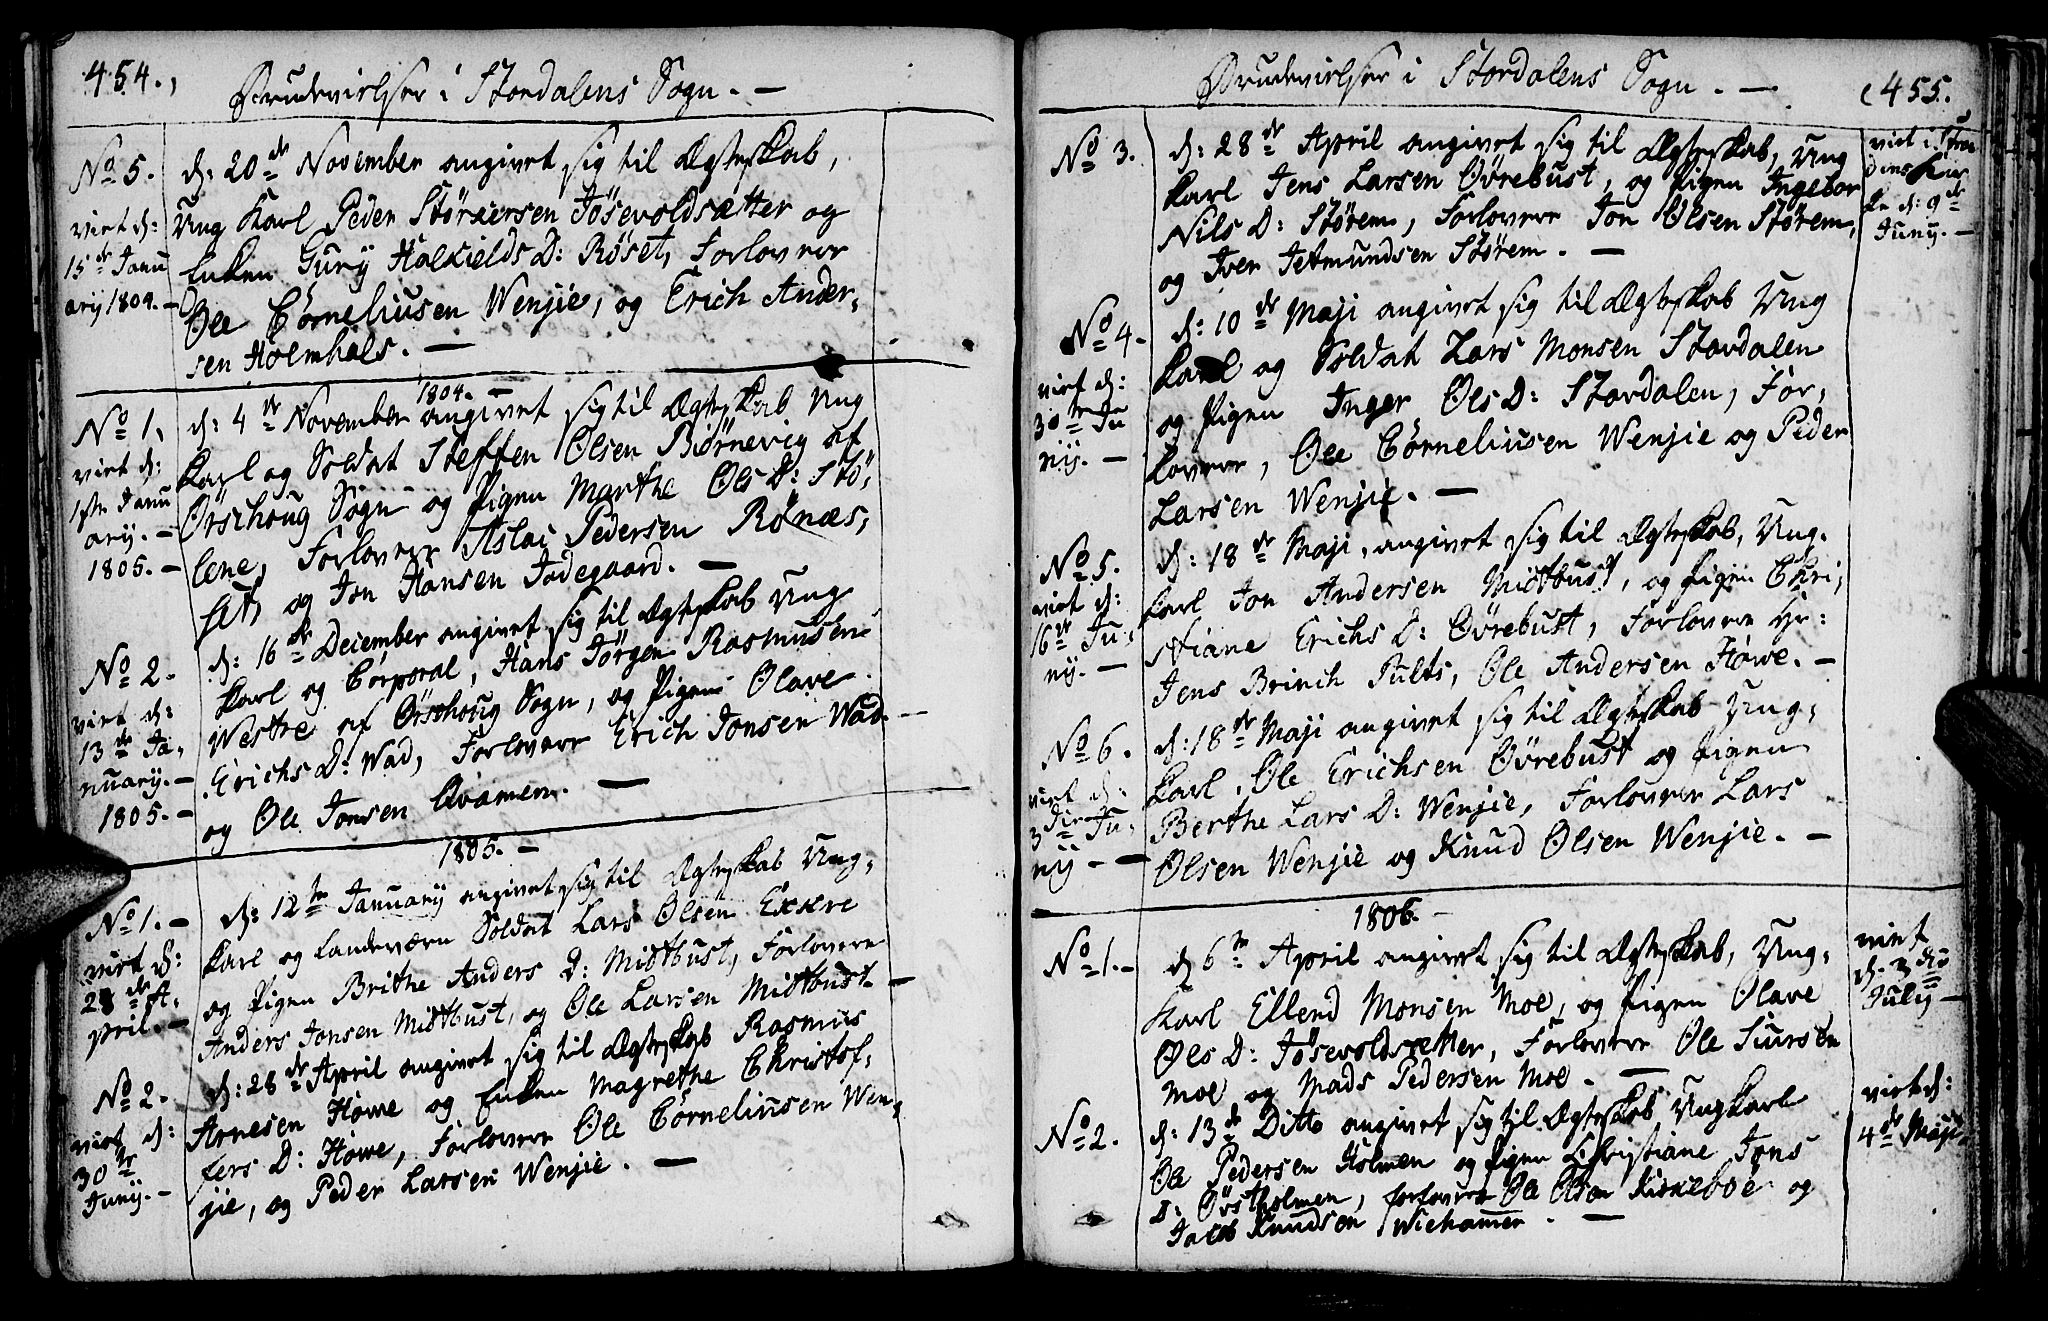 454.,
Brudevielser i Stordalens Sogn. —
No 5.
virt d:
15de Janu
arij 1804. —
d: 20de November angivet sig til Ægteskab,
Ung Karl Peder Størkersen Jösevoldsætter og
Enken Gurij HalkieldsD: Röset, Forlovere
Ole Cörneliusen Wenjie, og Erich Ander,
sen Holmhals. —
1804. —
No 1,
virt d:
1ste Janu
arij. —
1805. —
d: 4de November angivet sig til Ægteskab Ung
Karl og Soldat Steffen Olsen Biörnevig af
Örschoug Sogn og Pigen Marthe Ols D: Stö,
lene, Forlovere Aslac Pedersen Rönæs,
set og Jon Hansen Jodegaard. —
No 2.
virt d:
13de Ja,
nuarij. —
1805. —
d: 16de December angivet sig til Ægteskab Ung
Karl og Corporal, Hans Jörgen Rasmusen
Westre af Örschoug Sogn, og Pigen Olave
Erichs D: Wad, Forlovere Erich Jonsen Wad —
og Ole Jonsen Qvamen. —
1805. —
No 1. —
virt d:
28de A,
pril. —
d: 12te Januarij angivet sig til Ægteskab Ung,
Karl og Landeværn Soldat Lars Olsen Exkre
og Pigen Brithe Anders D: Midtbust, Forlovere
Anders Jonsen Midtbust, og Ole Larsen Midtbust —
No 2.
virt d:
30te
Junij. —
d: 28de April angivet sig til Ægteskab Rasmus
Arnesen Howe og Enken Magrethe Christof,
fers D: Howe, Forlovere Ole Cörneliusen Wen,
jie, og Peder Larsen Wenjie. —
Brudevielser i Stordalens Sogn. —
455.
No 3.
d: 28de April angivet sig til Ægteskab, Ung
Karl Jens Larsen Övrebust, og Pigen Ingebor
Nils D: Störem, Forlovere Jon Olsen Störem,
og Iver Jetmundsen Störem. —
virt i Stran
dens Kir
ke d: 9de
Junij. —
No 4.
virt d:
30te Ju
nij. —
d: 10de Maji angivet sig til Ægteskab Ung
Karl og Soldat Lars Monsen Stordalen
og Pigen Inger Ols D: Stordalen, For,
lovere, Ole Cörneliusen Wenjie og Peder
Larsen Wenjie. —
No 5.
virt d:
16de Ju,
nij. —
d: 18de Maji, angivet sig til Ægteskab, Ung,
Karl Jon Andersen Midtbust, og Pigen Chri,
stiane Erichs D: Övrebust, Forlovere Hr:
Jens Brinch Tults, Ole Andersen Howe. —
No 6.
virt d:
3die Ju,
nij — —
d: 18de Maji angivet sig til Ægteskab Ung,
Karl, Ole Erichsen Övrebust og Pigen
Berthe Lars D: Wenjie, Forlovere Lars
Olsen Wenjie og Knud Olsen Wenjie. —
1806. —
No 1. —
d 6te April angivet sig til Ægteskab, Ung,
Karl Ellend Monsen Moe, og Pigen Olave
Ols D: Jösevoldsætter, Forlovere Ole Siursen
Moe og Mads Pedersen Moe. —
virt
d. 3die
Julij —
No 2.
d: 13de Ditto angivet sig til Ægteskab UngKarl
Ole Pedersen Holmen og Pigen Christiane Jons
D: Östholmen, forlovere Ole Olsen Kirkeböe og
Jacob Knudsen Wichamer. —
virt d:
4de Maji.